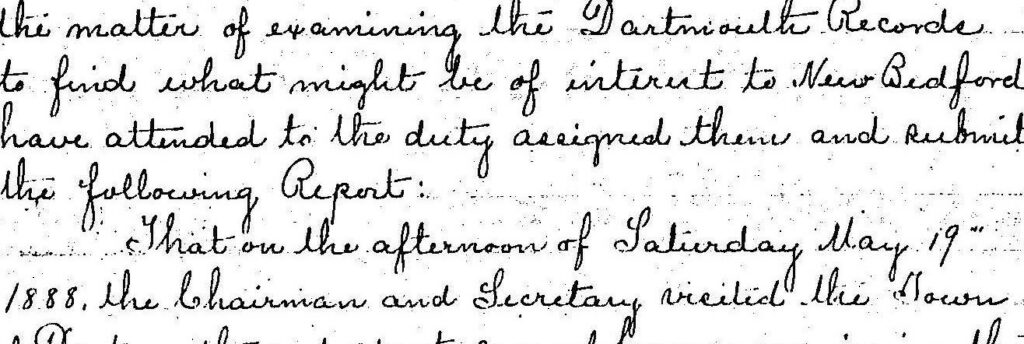 the matter of examining the Dartmouth Records
to find what might be of interest to New Bedford
have attended to the duty assigned them and submit
the following Report:
That on the afternoon of Saturday May 19"
1888, the Chairman and Secretary visited the Town